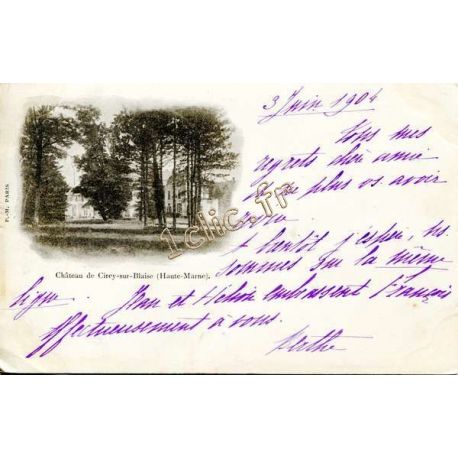 3 Juin 1904
Tous mes
regrets chère amie
de ne plus vous avoir
A bientôt j'espère, ns
sommes sur la même
ligne. Jean et embrassent François
affectueusement à vous.
Berthe
Château de Cirey-sur-Blaise (Haute-Marne).
P.-M. PARIS
1clic.fr